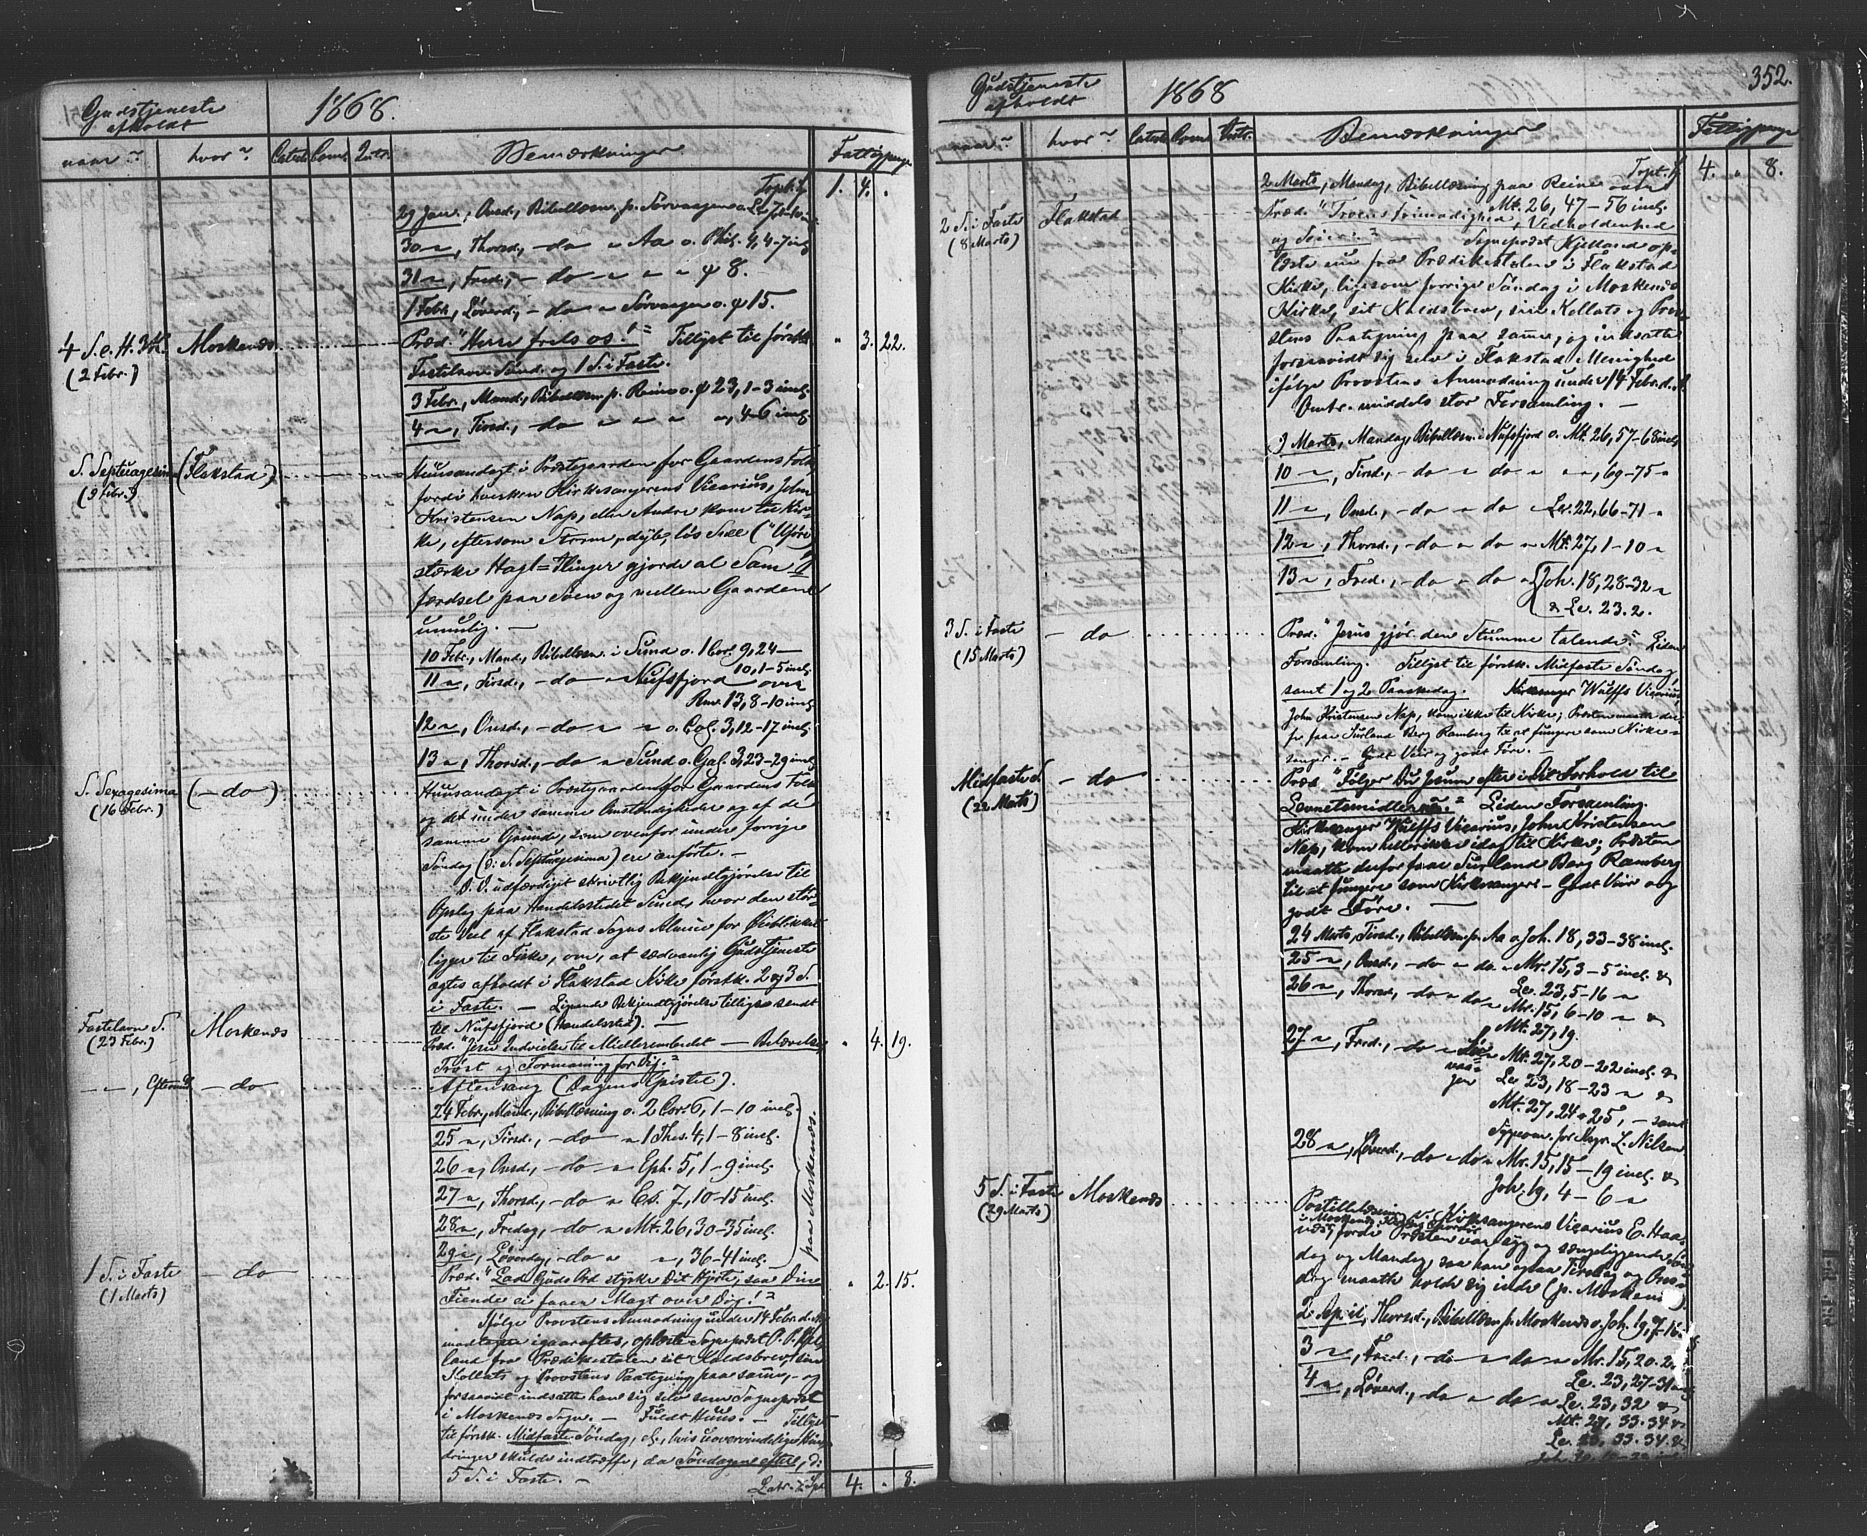 Gudstjeneste
afholdt
1868.
naar? hvor? Catech. Com. Intr. Bemærkninger. Fattigpenge
Tspt. 1. 4. "
29 Jan., Onsd., Bibellæsn. p. Sørvaagen o.
30 ", Thorsd., - do " Aa o. Phil. 4, 4-7 incl.
31 ", Fred., - do " " " ψ 8.
1 Febr., Løverd., - do " Sørvaagen o. ψ 15.
4 S. e. H. 3 K. Moskenes Præd. "Herre frels os!" Tillyst til førstk. " 3. 22.
(2 Febr.) Fastelavns Sønd. og 1 S. i Faste.
3 Febr., Mand., Bibellæsn. p. Reine o. ψ 23, 1-3 incl.
4 ", Tirsd., - do " " " ", 4-6 incl.
S. Septuagesima (Flakstad) Huusandagt i Præstegaarden for Gaardens Folk
(9 Febr.) fordi hverken Kirkesangerens Vicarius, John
Kristensen Nap, eller Andre kom til Kir-
ke, eftersom Storm, dyb, løs Snee ("Uføre")
stærke Hagl-Flinger gjorde al Sam-
færdsel paa Søen og mellem Gaardene
umulig. —
10 Febr., Mand., Bibellæsn. i Sund o. 1 Cor. 9, 24—
10, 1-5 incl.
11 ", Tirsd., - do " Nufsfjord over
Rom. 13, 8-10 incl.
12 ", Onsd., - do " " o. Col. 3, 12-17 incl.
13 ", Thorsd., - do " Sund o. Gal. 3, 23-29 incl.
S. Sexagesima (- do -) Huusandagt i Præstegaarden for Gaardens Folk
(16 Febr.) og det under samme Omstændigheder og af de
samme Grunde, som ovenfor under forrige
Søndag (o: S. Septuagesima) ere anførte. —
D. D. udfærdiget skriftlig Bekjendtgjørelse til
Opslag paa Handelsstedet Sund, hvor den stør-
ste Deel af Flakstad Sogns Almue for Øieblikket
ligger til Fiske, om, at sædvanlig Gudstjeneste
agtes afholdt i Flakstad Kirke førstk. 2 og 3 S.
i Faste. — Lignende Bekjendtgjørelse tilligesendt
til Nufsfjord (Handelssted). —
Fastelavn S. Moskenes Præd. "Jesu Indvielse til Midlerembedet — Belærelse, " 4. 19.
(23 Febr.) Trøst og Formaning for Dig."
— " —, Efterm. - do Aftensang (Dagens Epistel).
24 Febr., Mand., Bibellæsning o. 2 Cor. 6, 1-10 incl.
25 ", Tirsd., - do " 1 Thes. 4, 1-8 incl.
26 ", Onsd., - do " Eph. 5, 1-9 incl.
27 ", Thorsd., - do " Es. 7, 10-15 incl.
28 ", Fredag, - do " Mt. 26, 30-35 incl.
29 ", Løverdag, - do " ", 36-41 incl.
paa Moskenes.
1 S. i Faste - do Præd. "Lad Guds Ord styrke Dit Hjerte, saa Dine " 2. 15.
(1 Marts) Fiender ei faaer Magt over Dig!"
Ifølge Provstens Anmodning under 14 Febr. d. A.
modtagen igaaraftes, oplæste Sognepræst
land fra Prædikestolen sit Kaldsbrev, sin
Kollats og Provstens Paategning paa samme, og
forsaavidt indsatte han sig selv som Sognepræst
i Moskenes Sogn. — Fuldt Huus. — Tillyst
til førstk. Midfaste Søndag, el., hvis uovervindelige Hin-
dringer skulde indtræffe, da Søndagen efter, o:
5 S. i Faste. —
Latr. 4. " 8.
Gudstjeneste
afholdt
1868
352.
naar? hvor? Catech. Com. Intr. Bemærkninger Fattigpenge
Tspt. 4. " 8.
2 Marts, Mandag, Bibellæsning paa Reine over
Mt. 26, 47-56 incl.
2 S. i Faste Flakstad Præd. "Troens frimodighed, Vedholdenhed
(8 Marts) og Seier." — Sognepræst Kjelland op-
læste nu fra Prædikestolen i Flakstad
Kirke, ligesom forrige Søndag i Moskenes
Kirke, sit Kaldsbrev, sin Kollats og Prov-
stens Paategning paa samme, og indsatte
forsaavidt sig selv i Flakstad Menighed
ifølge Provstens Anmodning under 14 Febr. d. A.
Omtr. middels stor Forsamling. —
9 Marts, Mandag, Bibellæsn. i Nufsfjord o. Mt. 26, 57-68 incl.
10 ", Tirsd., - do " do " ", 69-75 "
11 ", Onsd., - do " do " Lc. 22, 66-71 "
12 ", Thorsd., - do " do " Mt. 27, 1-10 "
13 ", Fred., - do " do " Joh. 18, 28-32 "
& Lc. 23. 2.
3 S. i Faste - do Præd. "Jesus gjør den Stumme talende." Liden
(15 Marts) Forsamling. Tillyst til førstk. Midfaste Søndag,
samt 1 og 2 Paaskedag. Kirkesanger Wulffs Vicarius,
John Kristensen Nap, kom ikke til Kirke; Præsten maatte der-
for faae Suurland Berg Ramberg til at fungere som Kirke-
sanger. — Godt Veir og godt Føre. —
Midfaste S. - do Præd. "Følger Du Jesum efter i Dit Forhold til
(22 Marts) Levnetsmidlerne?" Liden Forsamling.
Kirkesanger Wulffs Vicarius, John Kristensen
Nap, kom heller ikke idag til Kirke; Præsten
maatte derfor faae Suurland Berg Ramberg
til at fungere som Kirkesanger. — Godt Veir og
godt Føre. —
24 Marts, Tirsd., Bibellæsn. p. Aa o. Joh. 18, 33-38 incl.
25 ", Onsd., - do " do " Mr. 15, 3-5 incl. &
Lc. 23, 5-16 "
26 ", Thorsd., - do " do " Mr. 15, 6-10 " &
Mt. 27, 19.
27 ", Fred., - do " Sør-
vaa-
gen Mt. 27, 20-22 incl. &
Lc. 23, 18-23 " &
Mt. 27, 24 & 25, - samt
Sygecom. for L. Nilsen
28 ", Løverd., - do " do " Mr. 15, 15-19 incl. &
Joh. 19, 4-6 "
5 S. i Faste Moskenes Postillelæsning v. Kirkesangerens Vicarius E. Haa-
(29 Marts) fordi Præsten var syg og sengeliggende Søn-
dag og Mandag, saa han ogsaa Tirsdag og Ons-
dag maatte holde sig inde (p. Moskenes).
2 April, Thorsd., Bibellæsn. p. Moskenes o. Joh. 19, 7-16 incl.
3 ", Fred., - do " do " Mr. 15, 20.
Lc. 23, 27-31
4 ", Løverd., - do " do " Lc. 23, 32 &
Mt. 27, 33. 34 &
Lc. 23, 33. 34. &